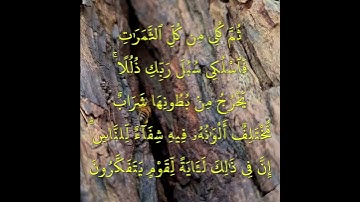 ثُمَّ كُلِي مِن كُلِّ ٱلثَّمَرَٰتِ
فَٱسْلُكِي سُبُلَ رَبِّكِ ذُلُلًا ۚ
يَخْرُجُ مِنۢ بُطُونِهَا شَرَابٌ
مُّخْتَلِفٌ أَلْوَٰنُهُۥ فِيهِ شِفَآءٌ لِّلنَّاسِ ۗ
إِنَّ فِي ذَٰلِكَ لَـَٔايَةً لِّقَوْمٍ يَتَفَكَّرُونَ